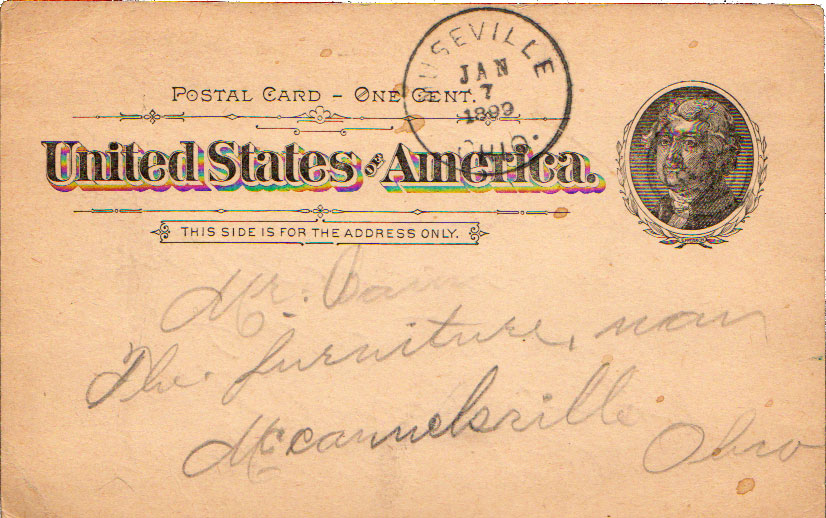 MUSEVILLE
JAN
7
1899
OHIO.
POSTAL CARD – ONE CENT.
United States of America.
THIS SIDE IS FOR THE ADDRESS ONLY.
Mr. Bain
The furniture, man
Mccannelsville
Ohio